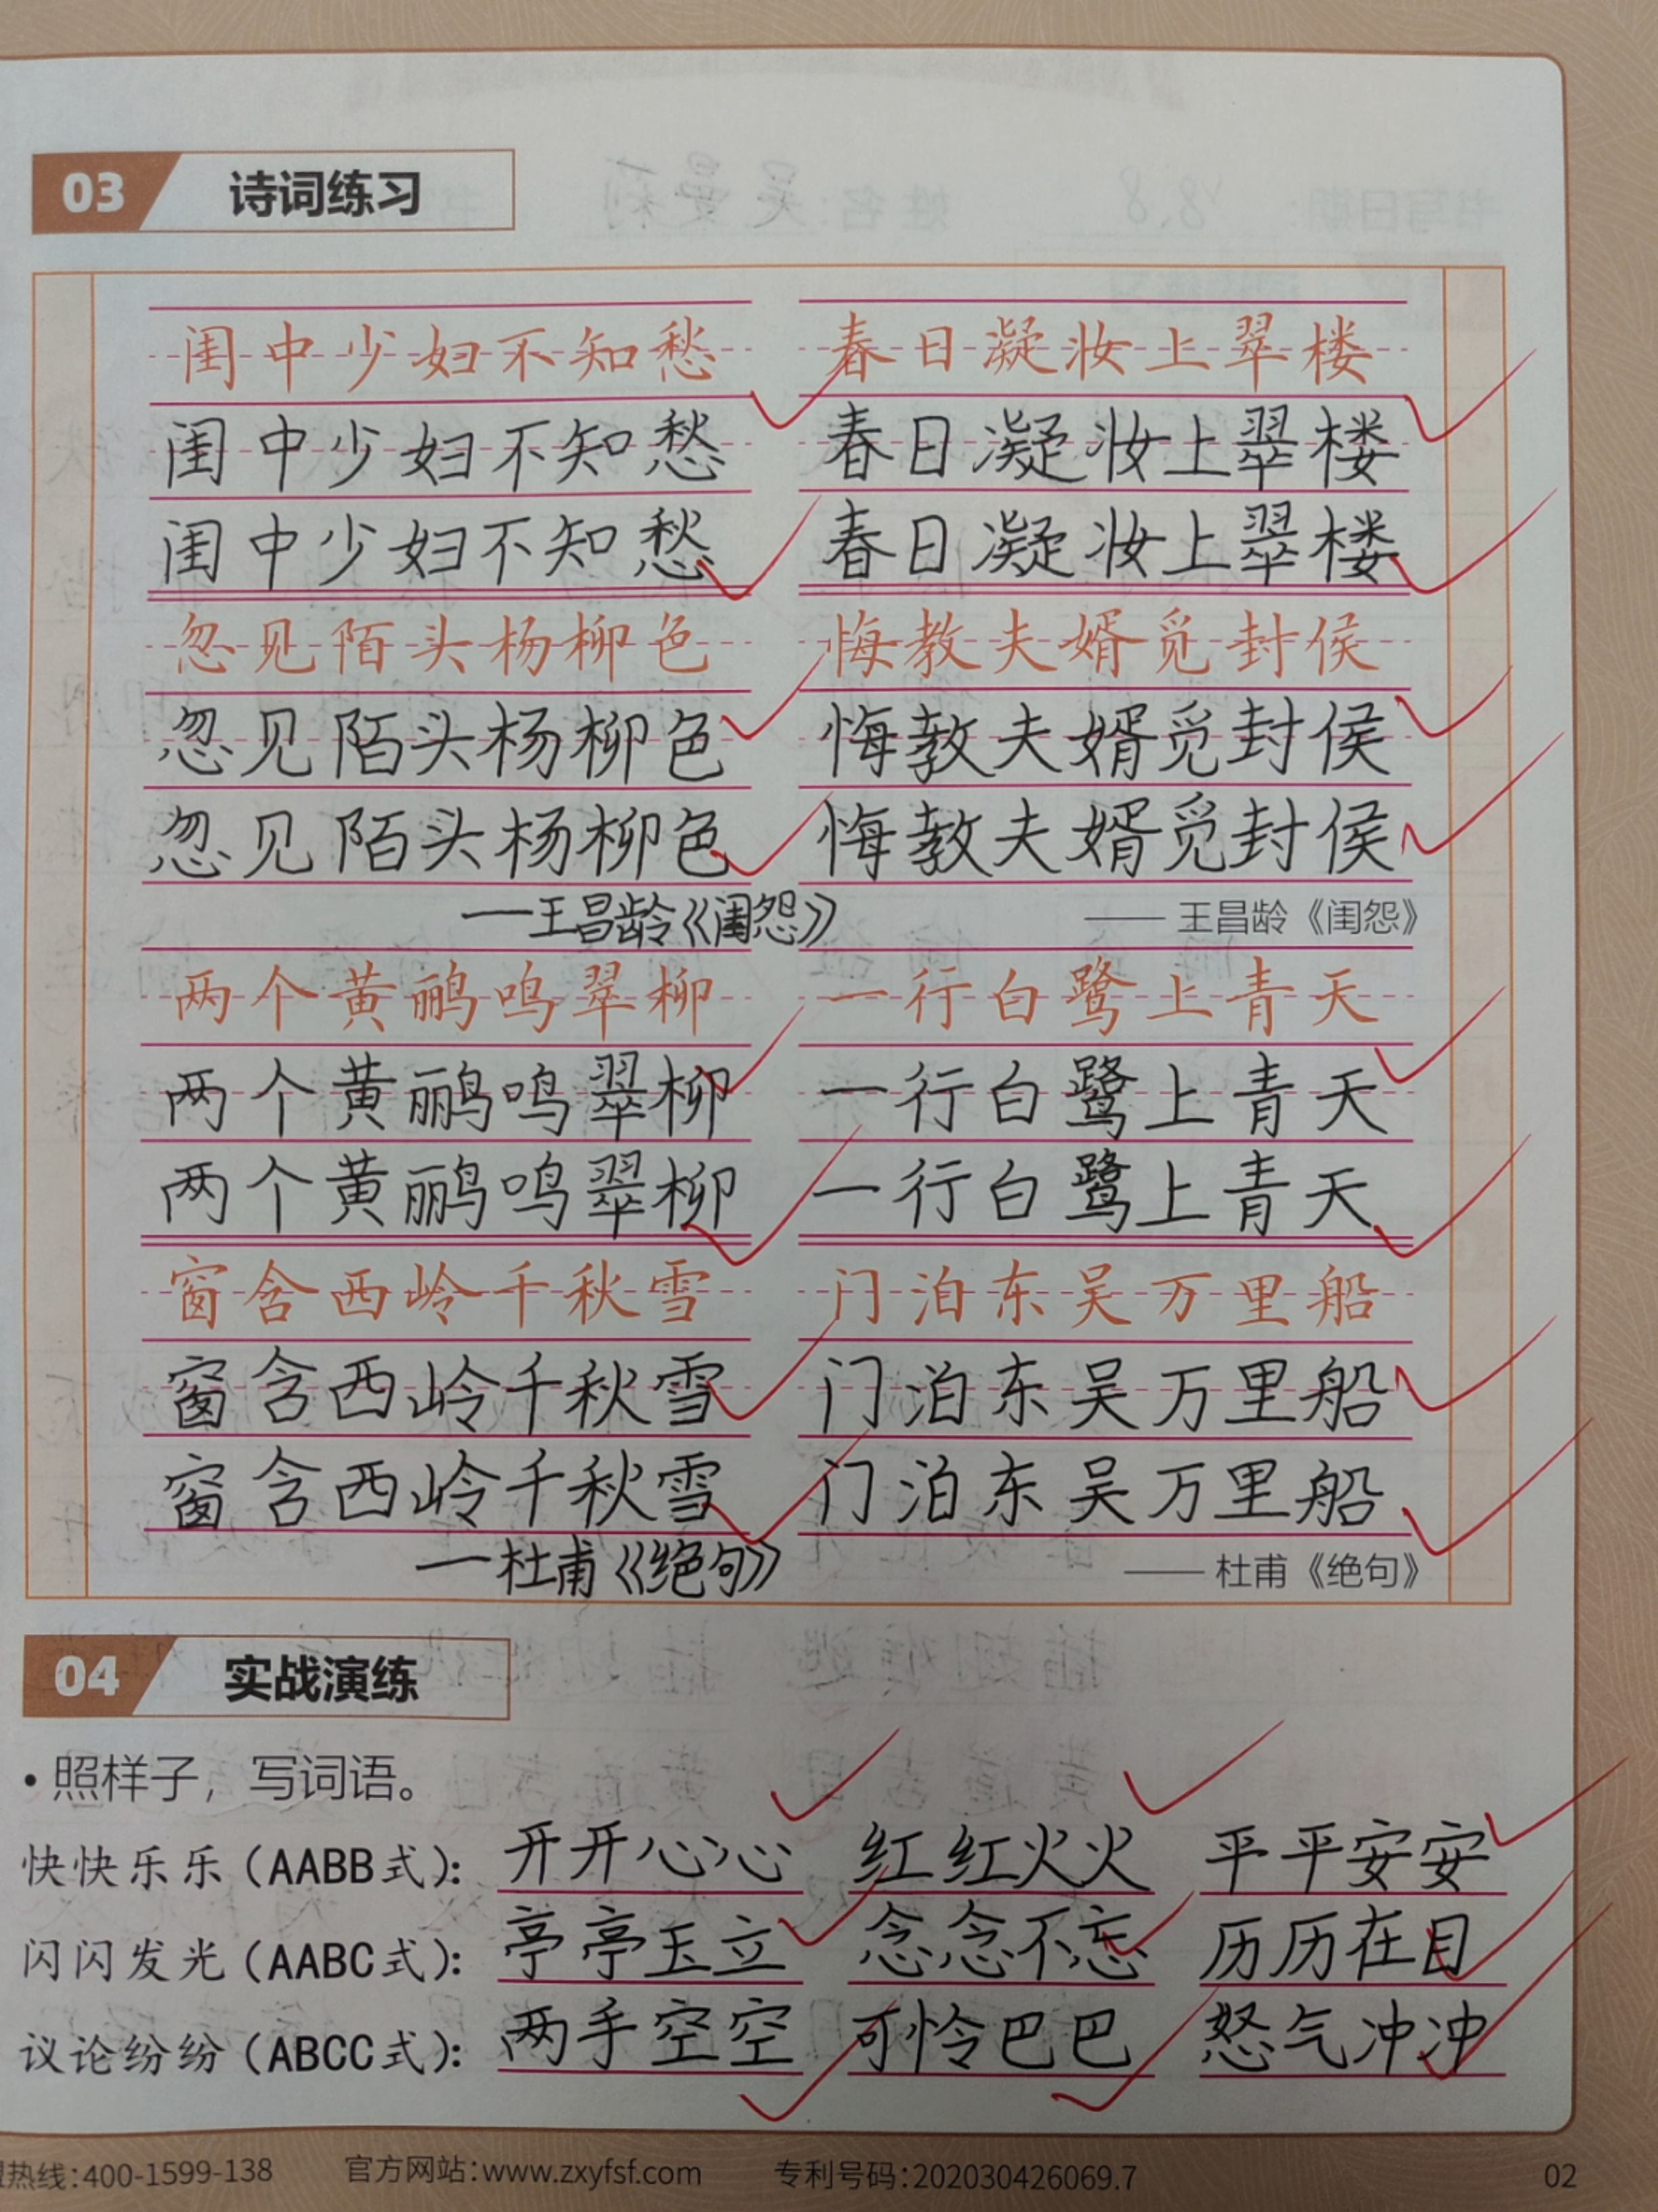 03 诗词练习
闺中少妇不知愁 春日凝妆上翠楼
闺中少妇不知愁 春日凝妆上翠楼
闺中少妇不知愁 春日凝妆上翠楼
忽见陌头杨柳色 悔教夫婿觅封侯
忽见陌头杨柳色 悔教夫婿觅封侯
忽见陌头杨柳色 悔教夫婿觅封侯
—王昌龄《闺怨》 —— 王昌龄《闺怨》
两个黄鹂鸣翠柳 一行白鹭上青天
两个黄鹂鸣翠柳 一行白鹭上青天
两个黄鹂鸣翠柳 一行白鹭上青天
窗含西岭千秋雪 门泊东吴万里船
窗含西岭千秋雪 门泊东吴万里船
窗含西岭千秋雪 门泊东吴万里船
—杜甫《绝句》 —— 杜甫《绝句》
04 实战演练
• 照样子，写词语。
快快乐乐（AABB式）：开开心心 红红火火 平平安安
闪闪发光（AABC式）：亭亭玉立 念念不忘 历历在目
议论纷纷（ABCC式）：两手空空 可怜巴巴 怒气冲冲
热线：400-1599-138 官方网站：www.zxyfsf.com 专利号码：202030426069.7 02